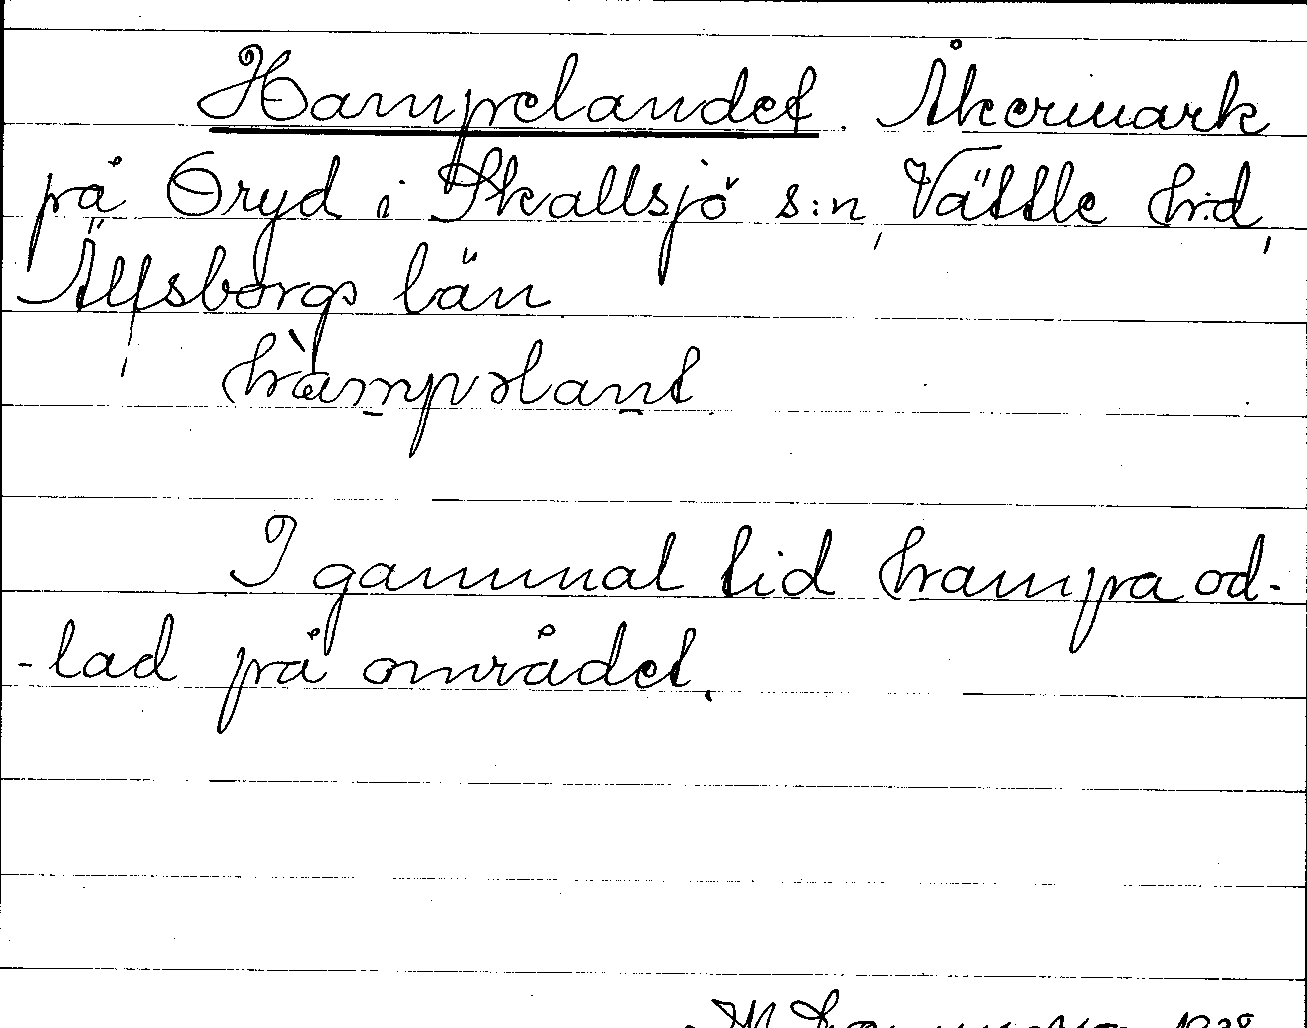 Hampelandet. Åkermark
på Öryd i Skallsjö s:n, Vättle h:d,
Älfsborgs län.
I gammal tid hampa od-
-lad på området.